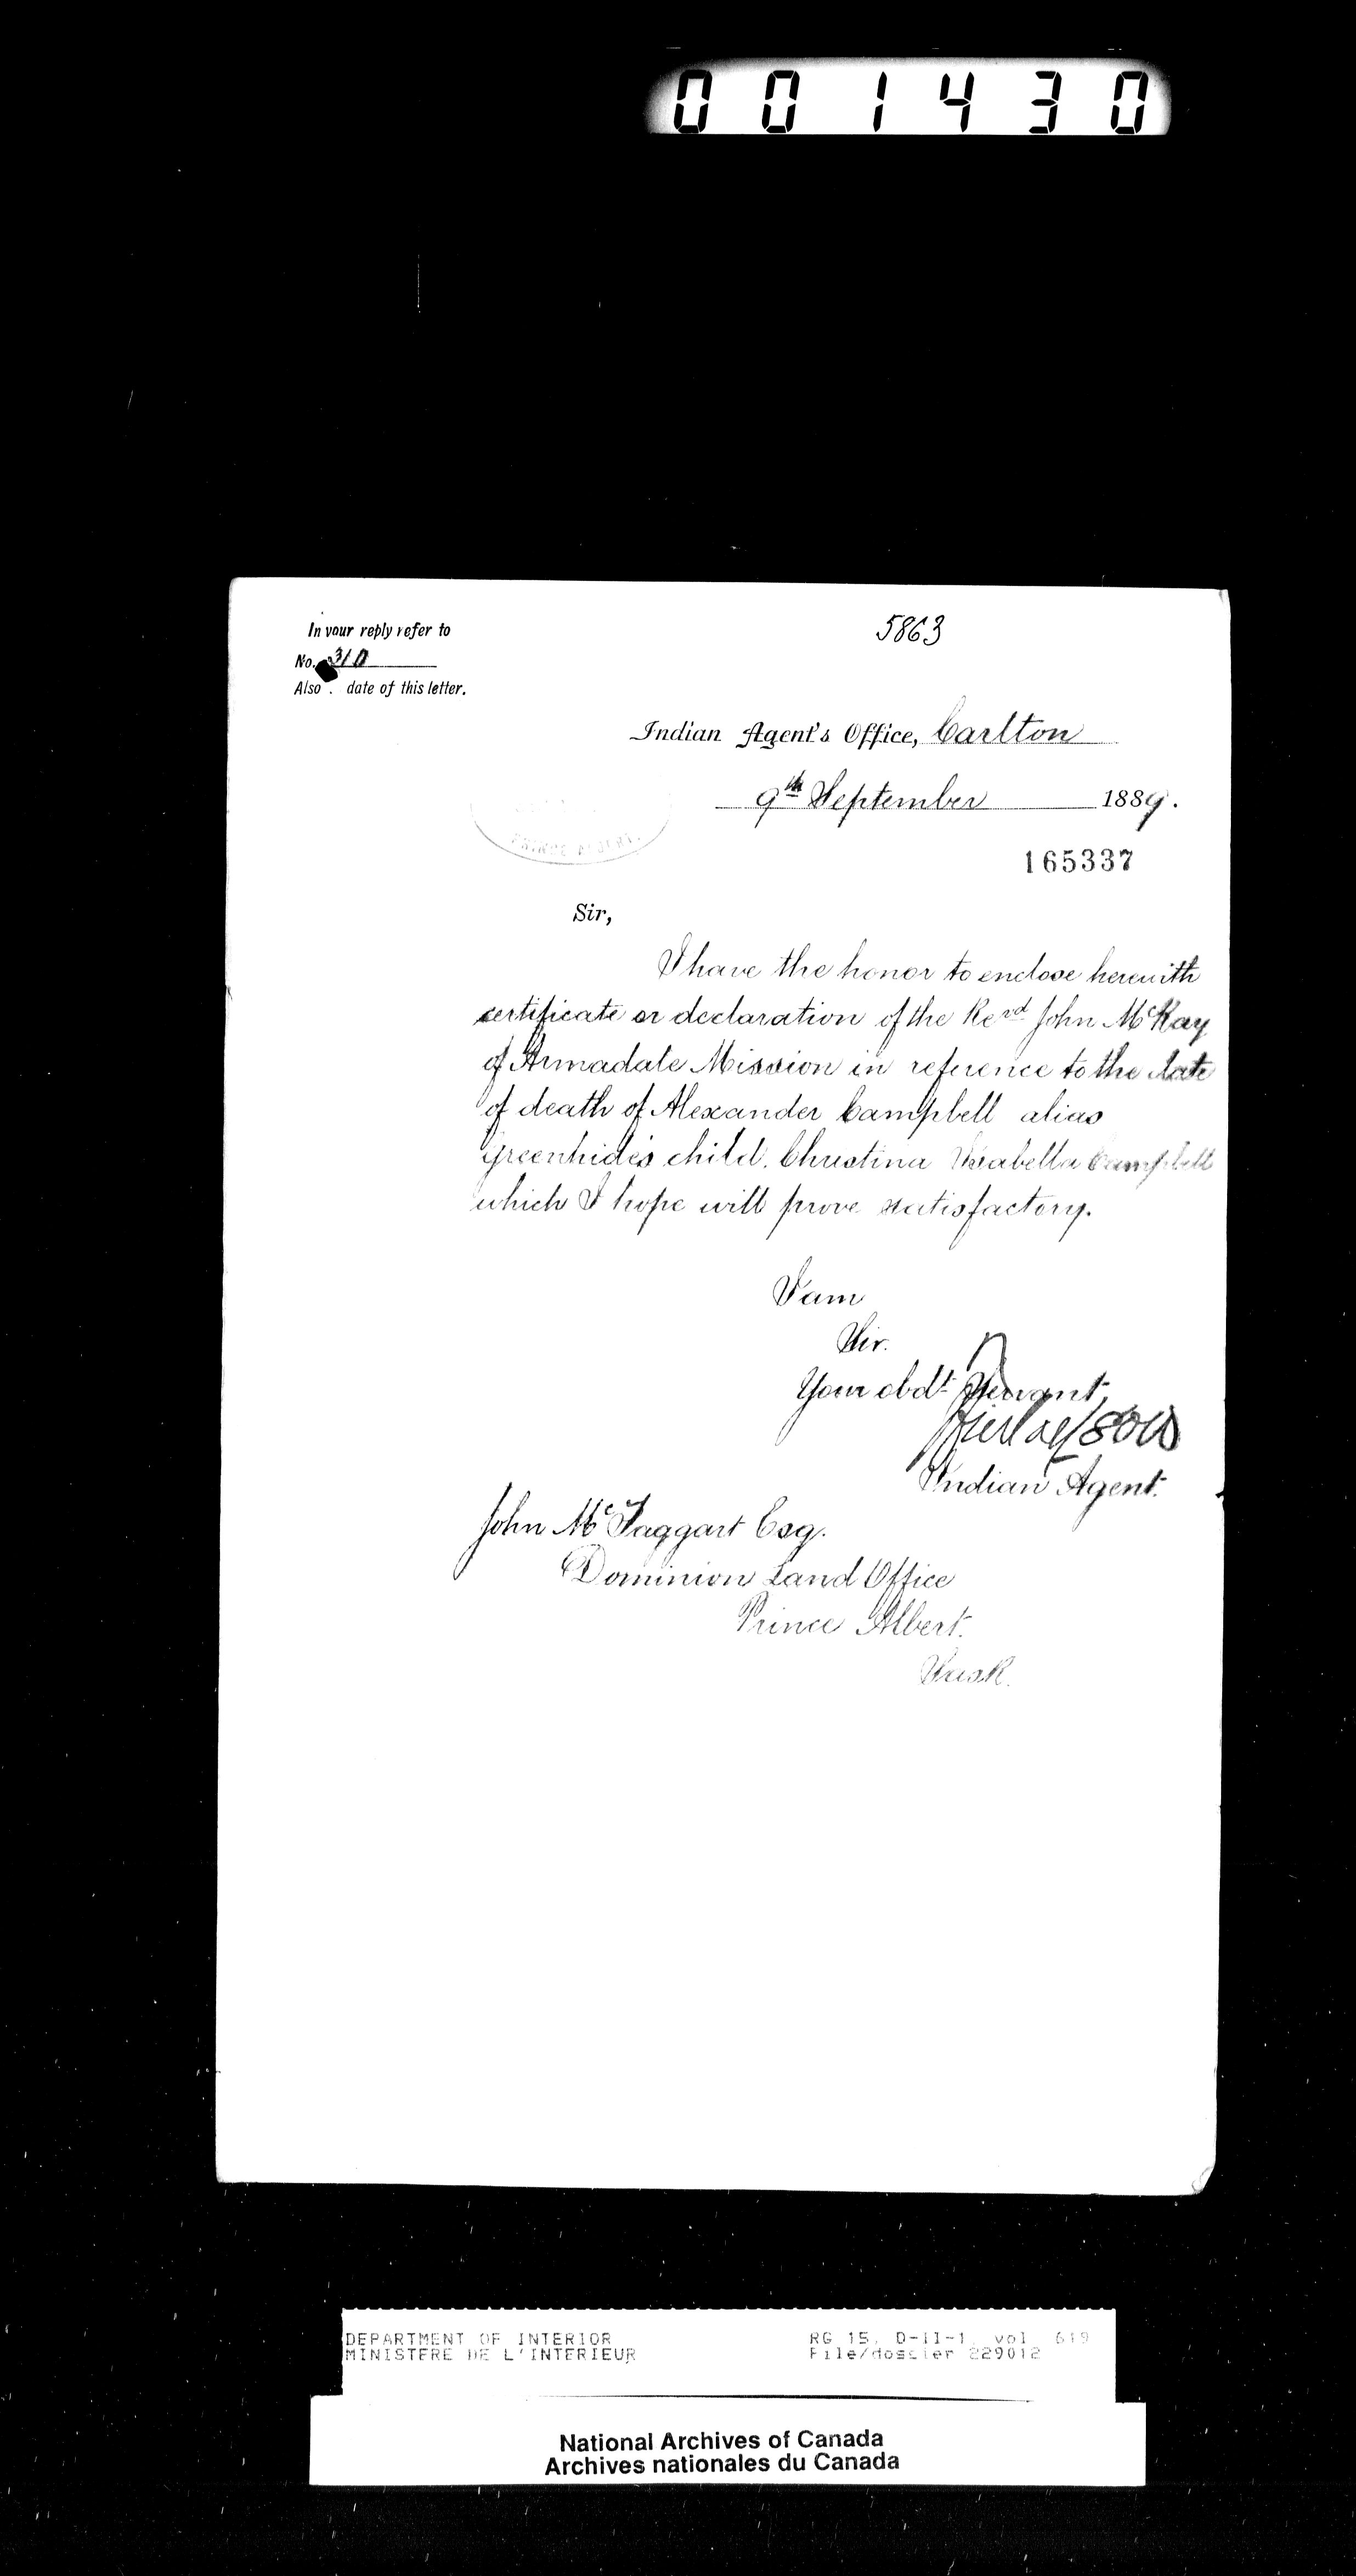 001430
In your reply refer to
5863
No. 310
Also date of this letter.
Indian Agent's Office, Carlton
9th September 1889.
PRINCE ALBERT.
165337
Sir,
I have the honor to enclose herewith
certificate or declaration of the Revd John McKay
of Armadale Mission in reference to the date
of death of Alexander Campbell alias
Greenhide's child. Christina Isabella Campbell
which I hope will prove satisfactory.
I am
Sir.
Your obdt Servant,
Indian Agent.
John McTaggart Esq.
Dominion Land Office
Prince Albert.
Sask.
DEPARTMENT OF INTERIOR
MINISTERE DE L'INTERIEUR
RG 15, D-II-1, vol 619
File/dossier 229012
National Archives of Canada
Archives nationales du Canada